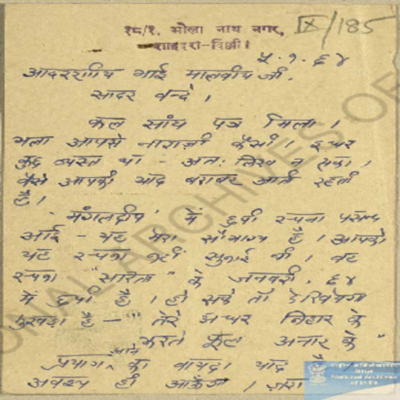 १८/१, भोला नाथ नगर,
शाहदरा-दिल्ली।
IX/185
५.१.६४
आदरणीय भाई मालवीय जी,
सादर वन्दे।
कल सांय पत्र मिला।
भला आपसे नाराज़ी कैसी। इधर
कुछ व्यस्त था - अतः लिख न सका।
वैसे आपकी याद बराबर आती रहती
है।
'मंगलदीप' में छपी रचना पसन्द
आई - यह मेरा सौभाग्य है। आपको
यह रचना नहीं सुनाई थी। वह
रचना "सरिता" के जनवरी, ६४
में छपी है। हो सके तो देखियेगा
मुखड़ा है - "तेरे अधर निहार के
झरते फूल अनार के"
प्रयाग का वायदा याद है
अवश्य ही आऊँगा। ज़रा